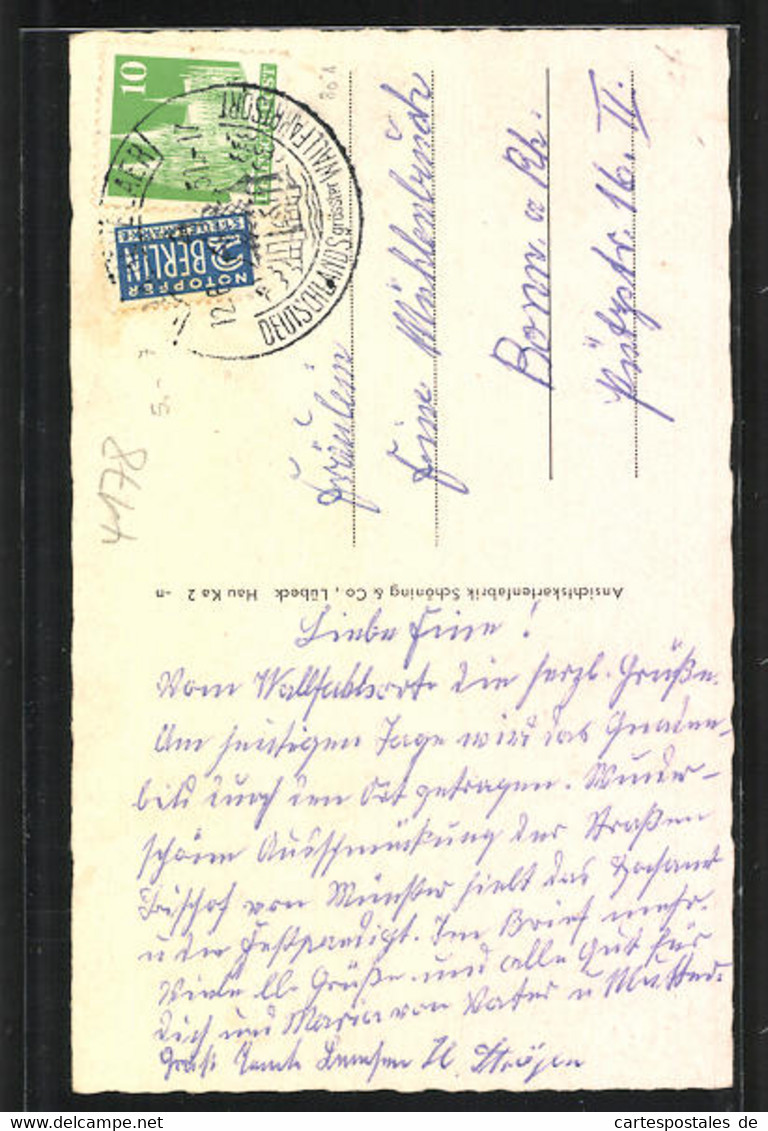 10
NOTOPFER
2 BERLIN
STEUERMARKE
DEUTSCHLANDS grösster WALLFAHRTSORT
4178
5.-
Fräulein
Fine Mühlenbruch
Bonn a Rh.
Pützstr. 16. II.
Ansichtskartenfabrik Schöning & Co., Lübeck Hau Ka 2 -n
Liebe Fine!
Vom Wallfahrtsorte die herzl. Grüße.
Am heutigen Tage wird das Gnaden-
bild durch den Ort getragen. Wunder-
schöne Ausschmückung der Straßen
Bischof von Münster hielt das Hochamt
u die Festpredigt. Im Brief mehr.
Viele lb. Grüße und alle Gut für
Dich und Maria von Vater u Mutter.
Gruß Tante
cartespostales de